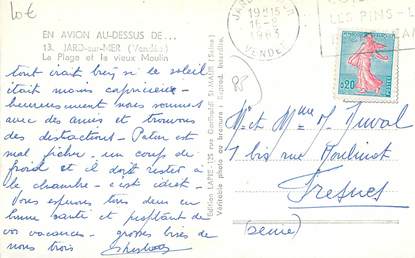 10€
EN AVION AU-DESSUS DE...
13. JARD-sur-MER (Vendée)
La Plage et le vieux Moulin
tout irait bien si le soleil
était moins capricieux -
heureusement nous sommes
avec des amis et trouvons
des distractions - Patou est
mal fichu - un coup de
froid et il doit rester à
la chambre - c'est idiot -
Nous espérons tous deux en
bonne santé et profitant de
vos vacances - grosses bises de
nous trois
Edition LAPIE - 125 rue Garibaldi St-MAUR (Seine)
Véritable photo au bromure - reprod. interdite.
19H15
16-8
1963
VENDÉE
LES PINS-
0,20
Mr et Mme M. Duval
1 bis rue Moulinet
Fresnes
(Seine)